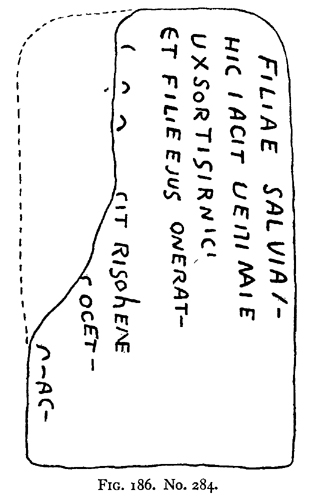 FILIAE SALVIA/-
HIC IACIT UE MAIE
UXSORTIGIRNICI
ET FILIE EJUS ONERAT-
CIT RIGOHENE
OCET-
-AC-
FIG. 186. No. 284.